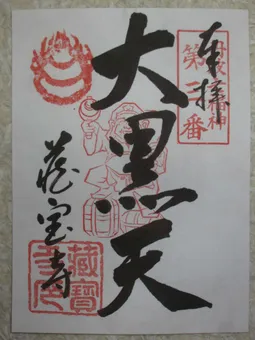 奉拝
福神
第
番
大黒天
蔵宝寺
藏寶